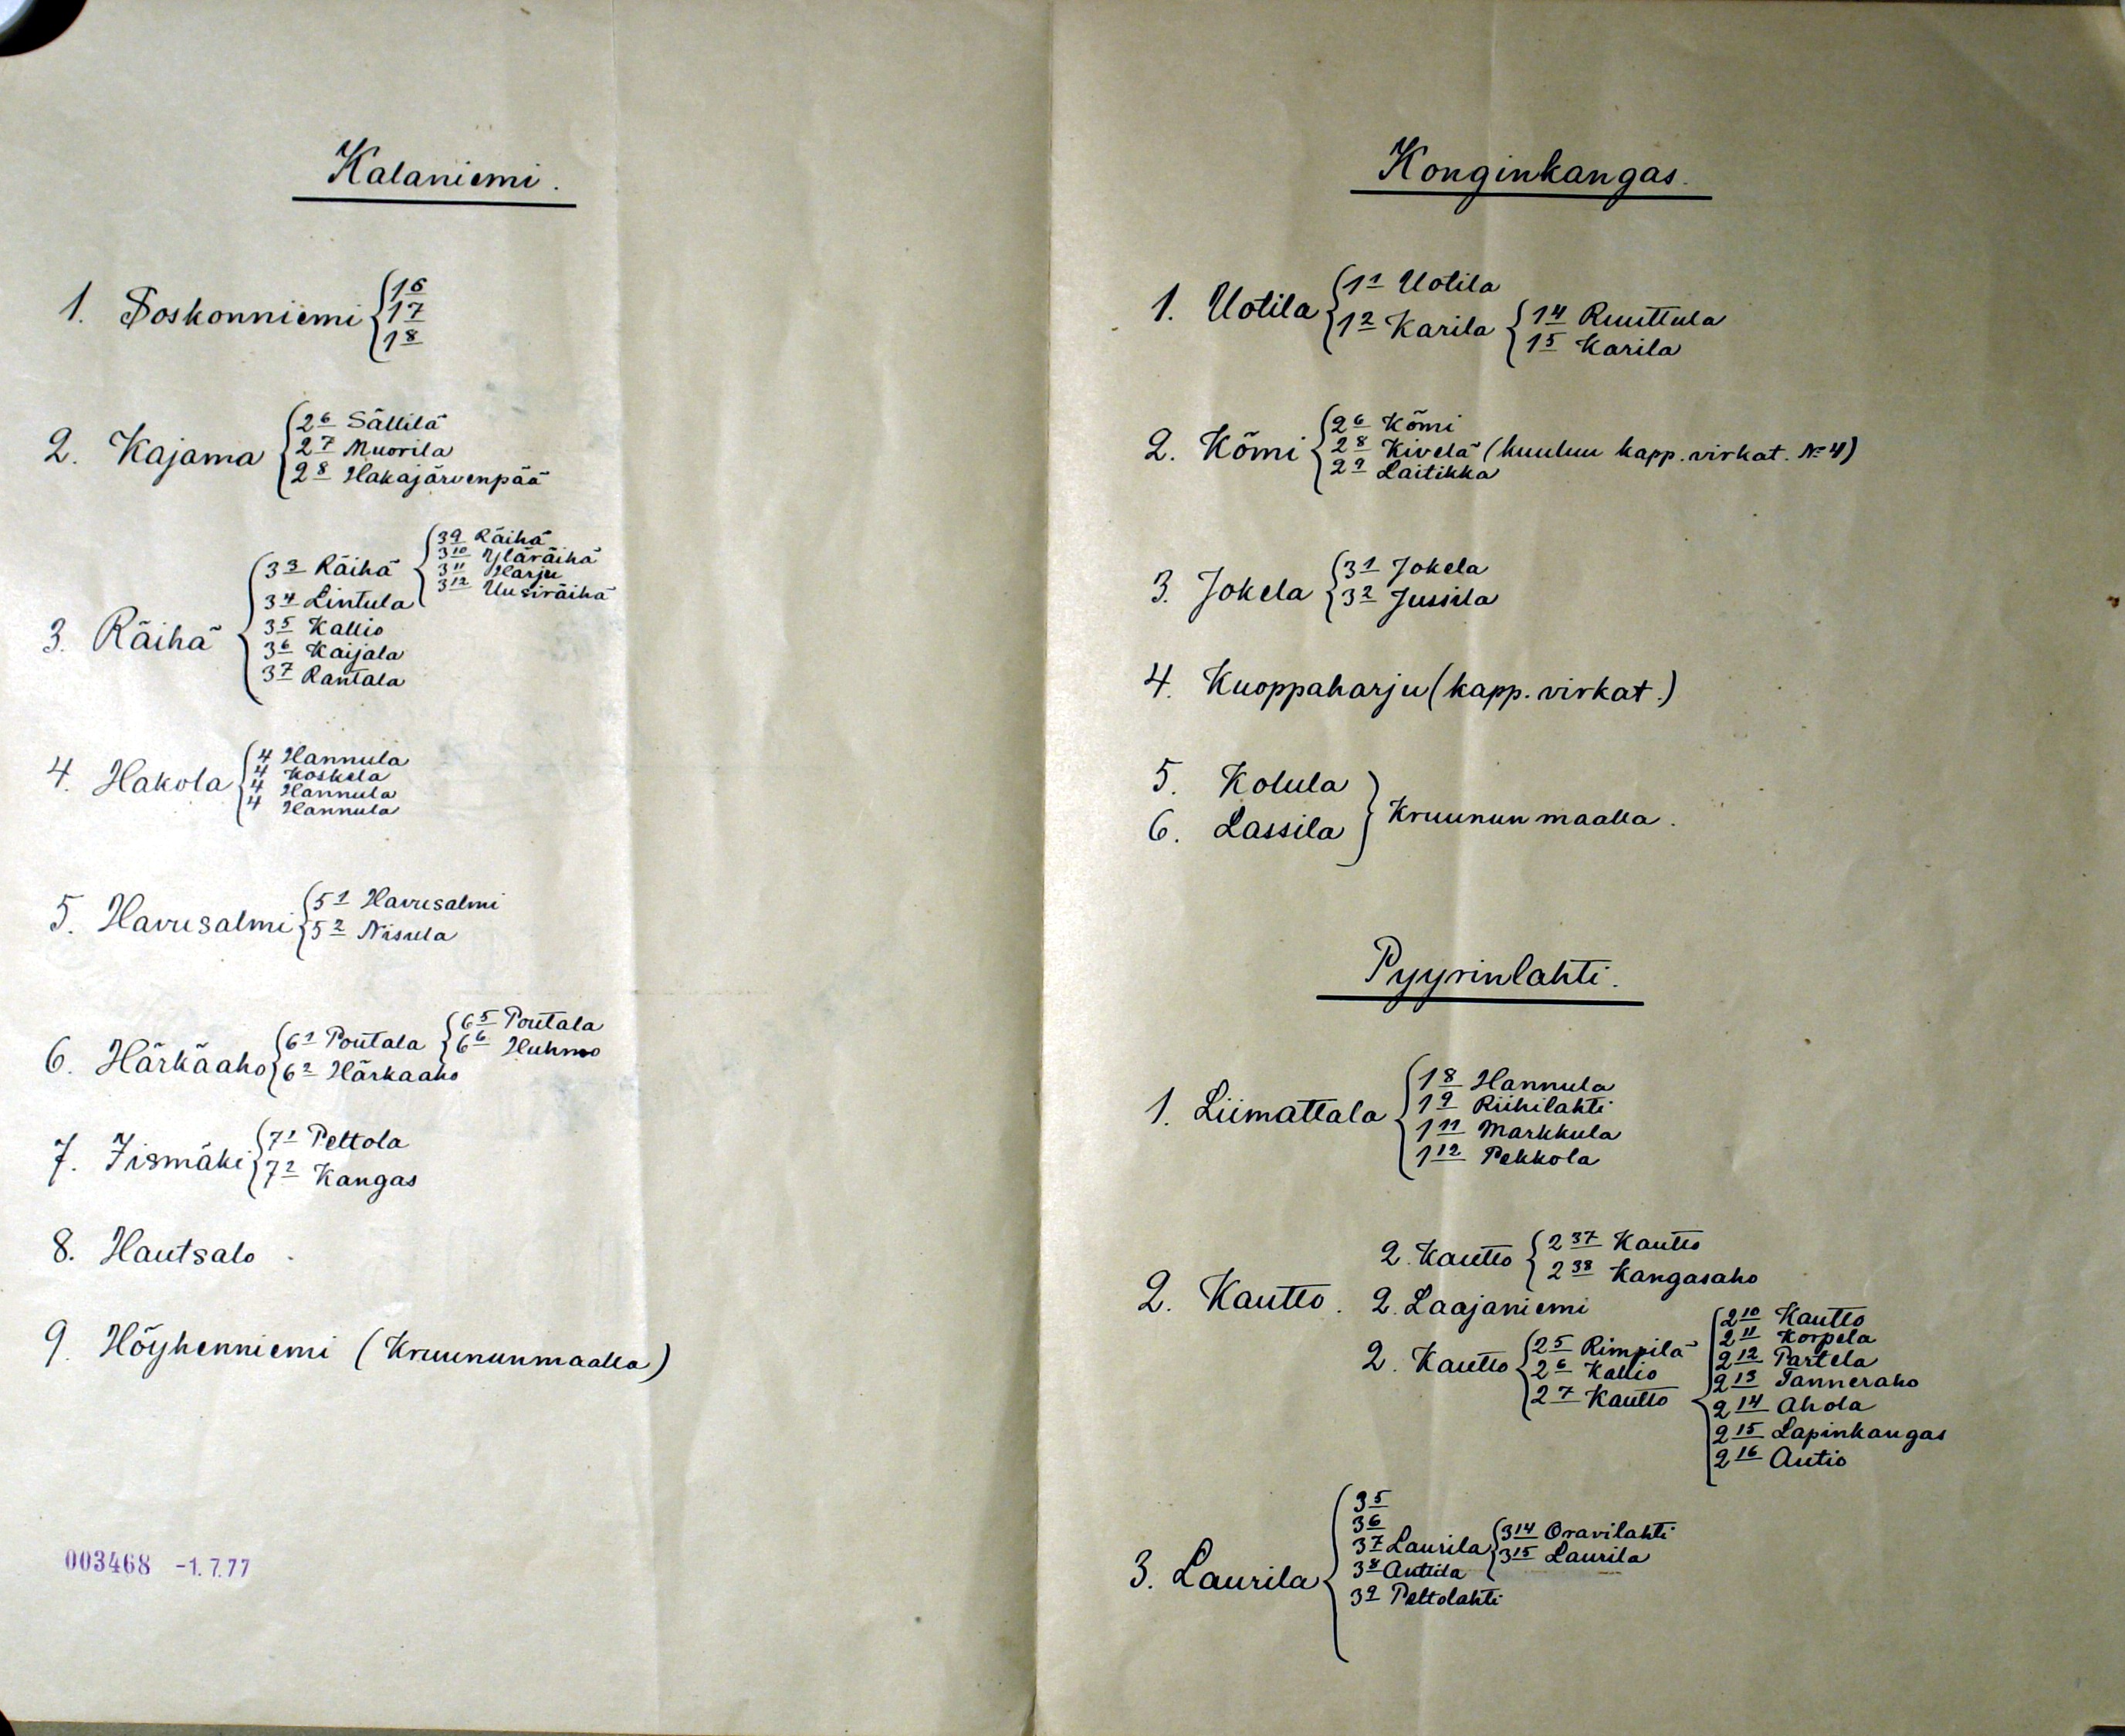 Kalaniemi.
1. Poskonniemi { 1 6
1 7
1 8
2. Kajama { 2 6 Sällilä
2 7 Muorila
2 8 Hakajärvenpää
3. Räihä { 3 3 Räihä { 3 9 Räihä
3 10 Yläräihä
3 11 Harju
3 12 Uusiräihä
3 4 Lintula
3 5 Kallio
3 6 Kaijala
3 7 Rantala
4. Hakola { 4 Hannula
4 Koskela
4 Hannula
4 Hannula
5. Havusalmi { 5 1 Havusalmi
5 2 Nisula
6. Härkäaho { 6 1 Poutala { 6 5 Poutala
6 6 Huhmo
6 2 Härkaaho
7. Iismäki { 7 1 Peltola
7 2 Kangas
8. Hautsalo
9. Höyhenniemi (Kruununmaalla)
003468 -1.7.77
Konginkangas.
1. Uotila { 1 1 Uotila
1 2 Karila { 1 4 Ruuttula
1 5 Karila
2. Kömi { 2 6 Kömi
2 8 Kivelä (kuuluu kapp. virkat. № 4)
2 9 Laitikka
3. Jokela { 3 1 Jokela
3 2 Jussila
4. Kuoppaharju (kapp. virkat.)
5. Kolula
6. Lassila } Kruunun maalla.
Pyyrinlahti.
1. Liimattala { 1 8 Hannula
1 9 Riihilahti
1 11 Markkula
1 12 Pekkola
2. Kautto. 2. Kautto { 2 37 Kautto
2 38 Kangasaho
2. Laajaniemi
2. Kautto { 2 5 Rimpilä
2 6 Kallio
2 7 Kautto { 2 10 Kautto
2 11 Korpela
2 12 Partela
2 13 Tanneraho
2 14 Ahola
2 15 Lapinkangas
2 16 Autio
3. Laurila { 3 5
3 6
3 7 Laurila { 3 14 Oravilahti
3 15 Laurila
3 8 Anttila
3 9 Peltolahti